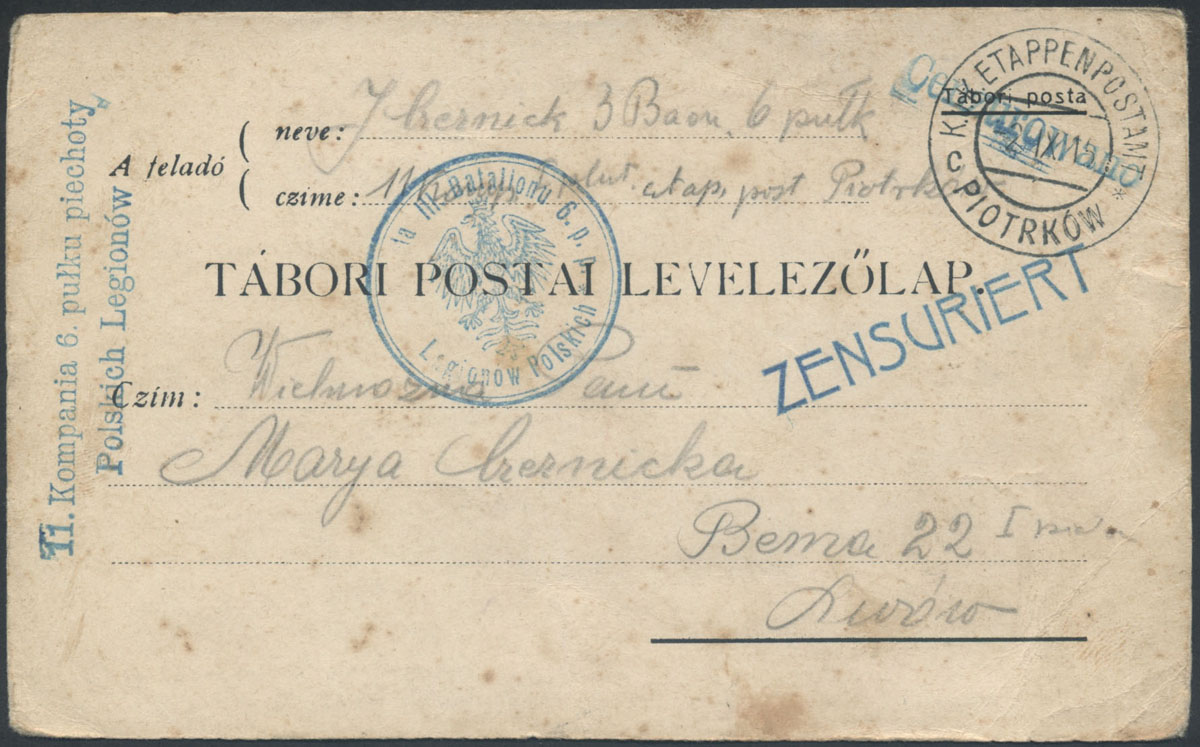 Tábori posta
K.u.K. ETAPPENPOSTAMT
PIOTRKÓW
c
IX 15
Cenzurowano
A feladó
neve: J Czernick 3 Baon. 6 pułk
czime: 11 etap. post Piotrków
III Batalionu 6. p. p.
Legionów Polskich
TÁBORI POSTAI LEVELEZŐLAP.
ZENSURIERT
Czím: Wielmożna Pani
Marya Czernicka
Bema 22 I
Lwów
11. Kompania 6. pułku piechoty
Polskich Legionów